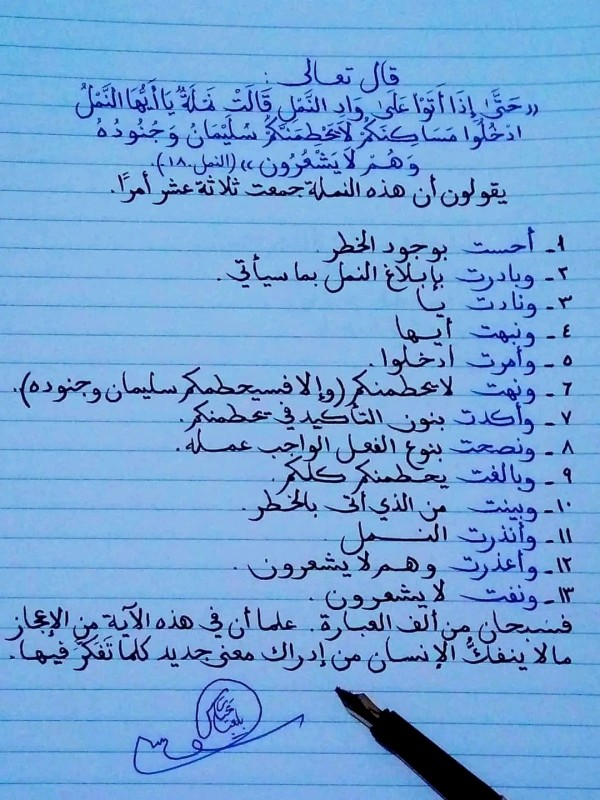 قال تعالى :
«حَتَّىٰ إِذَا أَتَوْا عَلَىٰ وَادِ النَّمْلِ قَالَتْ نَمْلَةٌ يَا أَيُّهَا النَّمْلُ
ادْخُلُوا مَسَاكِنَكُمْ لَا يَحْطِمَنَّكُمْ سُلَيْمَانُ وَجُنُودُهُ
وَهُمْ لَا يَشْعُرُون» (النمل.١٨).
يقولون أن هذه النملة جمعت ثلاثة عشر أمرًا.
١- أحست بوجود الخطر.
٢- وبادرت بإبلاغ النمل بما سيأتي.
٣- ونادت يا
٤- ونبهت أيها
٥- وأمرت أدخلوا.
٦- ونهت لا يحطمنكم (وإلا فسيحطمكم سليمان وجنوده).
٧- وأكدت بنون التأكيد في يحطمنكم.
٨- ونصحت بنوع الفعل الواجب عمله.
٩- وبالغت يحطمنكم كلكم.
١٠- وبينت من الذي أتى بالخطر.
١١- وأنذرت النمل.
١٢- وأعذرت وهم لا يشعرون.
١٣- ونفت لا يشعرون.
فسبحان من ألف العبارة. علما أن في هذه الآية من الإعجاز
ما لا ينفكُّ الإنسان من إدراك معنى جديد كلما تَفَكَّرَ فيها.